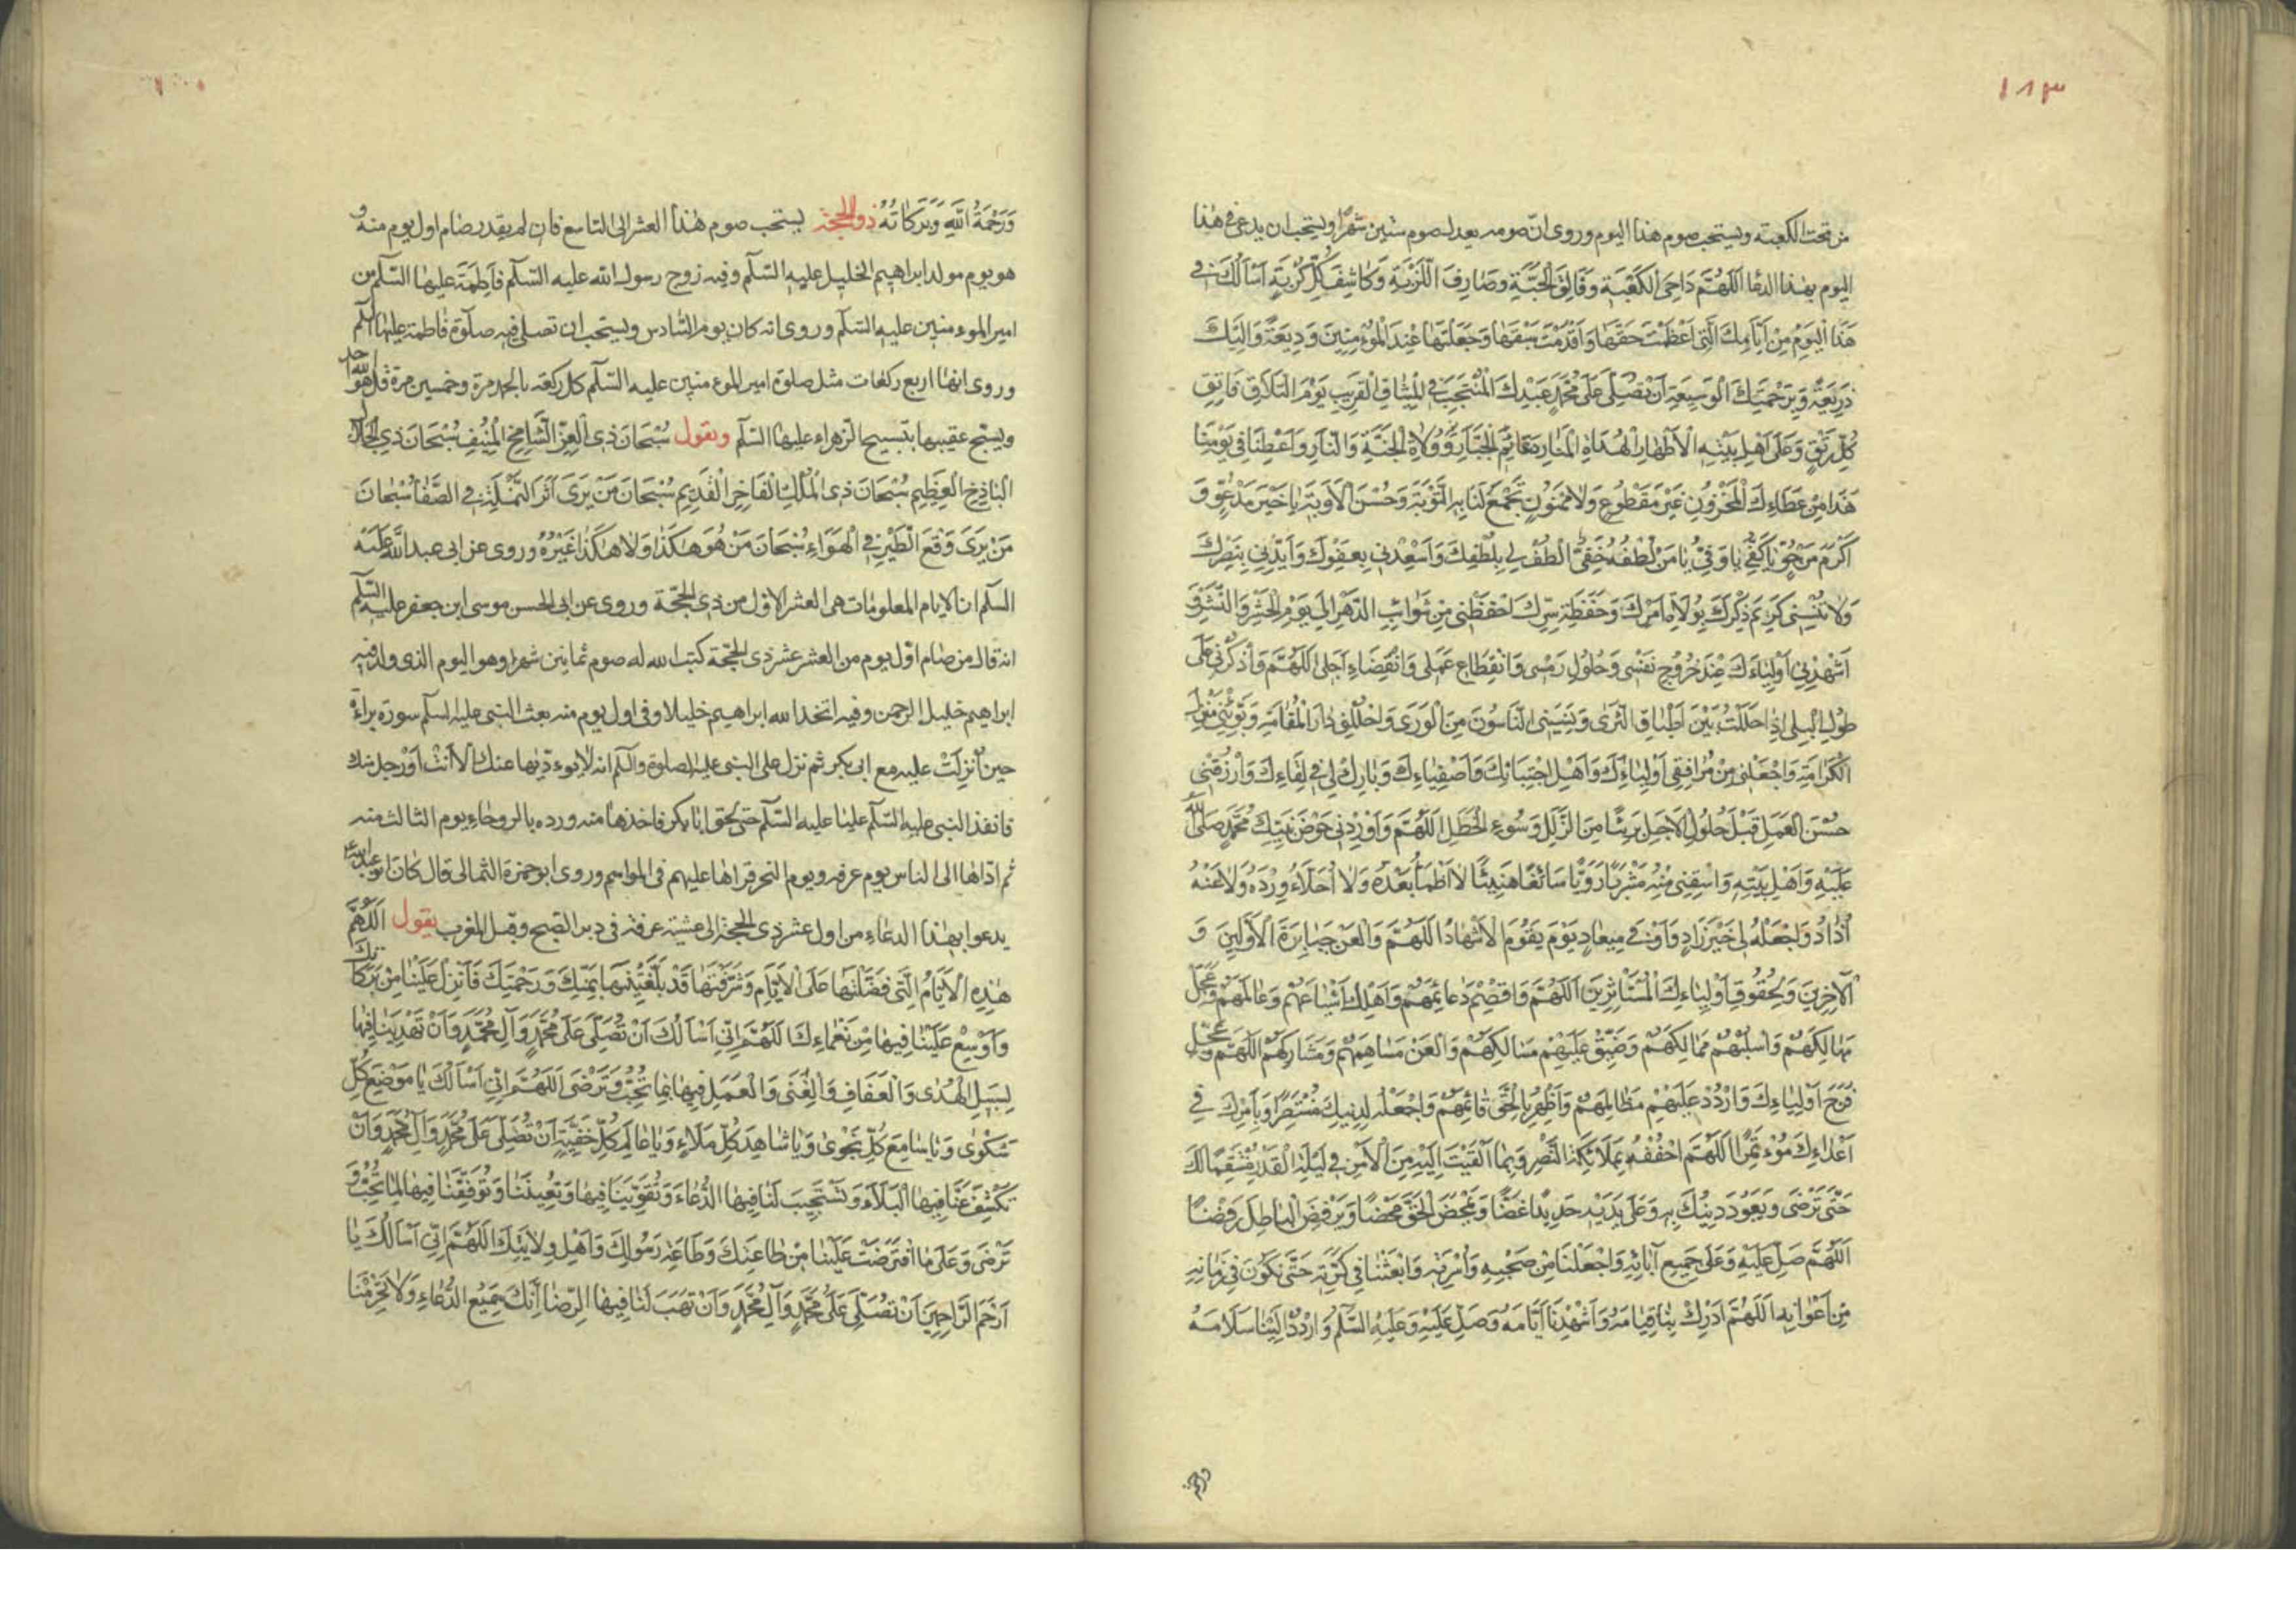 ١٨٣
من تحت الكعبة ويستحب صوم هذا اليوم وروى انّ صومه يعدل صوم ستين شهرًا ويستحب ان يدعى في هذا
اليوم بهذا الدعا اَللّهُمَّ دَاحِىَ الْكَعْبَةِ وَفَالِقَ الْحَبَّةِ وَصَارِفَ اللَّزْبَةِ وَكَاشِفَ كُلِّ كُرْبَةٍ اَسْاَلُكَ فى
هَذَا الْيَوْمِ مِنْ اَيَّامِكَ الَّتِى اَعْظَمْتَ حَقَّهَا وَاَقْدَمْتَ سَبْقَهَا وَجَعَلْتَهَا عِنْدَ الْمُؤْمِنِينَ وَدِيعَةً وَاِلَيْكَ
ذَرِيعَةً وَبِرَحْمَتِكَ الْوَسِيعَةِ اَنْ تُصَلِّىَ عَلَى مُحَمَّدٍ عَبْدِكَ الْمُنْتَجَبِ فِى الْمِيثَاقِ الْقَرِيبِ يَوْمَ التَّلَاقِ فَاتِقِ
كُلِّ رَتْقٍ وَعَلَى اَهْلِ بَيْتِهِ الْاَطْهَارِ الْهُدَاةِ الْمَنَارِ دَعَائِمِ الْجَبَّارِ وَوُلَاةِ الْجَنَّةِ وَالنَّارِ وَاَعْطِنَا فِى يَوْمِنَا
هَذَا مِنْ عَطَائِكَ الْمَخْزُونِ غَيْرَ مَقْطُوعٍ وَلَا مَمْنُونٍ تَجْمَعُ لَنَا بِهِ التَّوْبَةَ وَحُسْنَ الْاَوْبَةِ يَا خَيْرَ مَدْعُوٍّ وَ
اَكْرَمَ مَرْجُوٍّ يَا كَفِىُّ يَا وَفِىُّ يَا مَنْ لُطْفُهُ خَفِىٌّ الْطُفْ لِى بِلُطْفِكَ وَاَسْعِدْنِى بِعَفْوِكَ وَاَيِّدْنِى بِنَصْرِكَ
وَلَا تُنْسِنِى كَرِيمَ ذِكْرِكَ بِوُلَاةِ اَمْرِكَ وَحَفَظَةِ سِرِّكَ احْفَظْنِى مِنْ شَوَائِبِ الدَّهْرِ اِلَى يَوْمِ الْحَشْرِ وَالنَّشْرِ وَ
اَشْهِدْنِى اَوْلِيَاءَكَ عِنْدَ خُرُوجِ نَفْسِى وَحُلُولِ رَمْسِى وَانْقِطَاعِ عَمَلِى وَانْقِضَاءِ اَجَلِى اَللّهُمَّ وَاذْكُرْنِى عَلَى
طُولِ الْبِلَى اِذَا حَلَلْتُ بَيْنَ اَطْبَاقِ الثَّرَى وَنَسِيَنِى النَّاسُونَ مِنَ الْوَرَى وَاحْلِلْنِى دَارَ الْمُقَامَةِ وَبَوِّئْنِى مَنْزِلَ
الْكَرَامَةِ وَاجْعَلْنِى مِنْ مُرَافِقِى اَوْلِيَائِكَ وَاَهْلِ اجْتِبَائِكَ وَاَصْفِيَائِكَ وَبَارِكْ لِى فِى لِقَائِكَ وَارْزُقْنِى
حُسْنَ الْعَمَلِ قَبْلَ حُلُولِ الْاَجَلِ بَرِيئًا مِنَ الزَّلَلِ وَسُوءِ الْخَطَلِ اَللّهُمَّ وَاَوْرِدْنِى حَوْضَ نَبِيِّكَ مُحَمَّدٍ صَلَّى اللّه
عَلَيْهِ وَاَهْلِ بَيْتِهِ وَاسْقِنِى مِنْهُ مَشْرَبًا رَوِيًّا سَائِغًا هَنِيئًا لَا اَظْمَأُ بَعْدَهُ وَلَا اُحَلَّاءُ وِرْدَهُ وَلَا عَنْهُ
اُذَادُ وَاجْعَلْهُ لِى خَيْرَ زَادٍ وَاَوْفَى مِيعَادٍ يَوْمَ يَقُومُ الْاَشْهَادُ اَللّهُمَّ وَالْعَنْ جَبَابِرَةَ الْاَوَّلِينَ وَ
الْآخِرِينَ وَلِحُقُوقِ اَوْلِيَائِكَ الْمُسْتَأْثِرِينَ اَللّهُمَّ وَاقْصِمْ دَعَائِمَهُمْ وَاَهْلِكْ اَشْيَاعَهُمْ وَعَالَمَهُمْ وَعَجِّلْ
مَهَالِكَهُمْ وَاسْلُبْهُمْ مَمَالِكَهُمْ وَضَيِّقْ عَلَيْهِمْ مَسَالِكَهُمْ وَالْعَنْ مَسَاهِمَهُمْ وَمَشَارِكَهُمْ اَللّهُمَّ وَعَجِّلْ
فَرَجَ اَوْلِيَائِكَ وَارْدُدْ عَلَيْهِمْ مَظَالِمَهُمْ وَاَظْهِرْ بِالْحَقِّ قَائِمَهُمْ وَاجْعَلْهُ لِدِينِكَ مُنْتَصِرًا وَبِاَمْرِكَ فِى
اَعْدَائِكَ مُؤْتَمِرًا اَللّهُمَّ احْفُفْهُ بِمَلَائِكَةِ النَّصْرِ وَبِمَا اَلْقَيْتَ اِلَيْهِ مِنَ الْاَمْرِ فِى لَيْلَةِ الْقَدْرِ مُنْتَقِمًا لَكَ
حَتَّى تَرْضَى وَيَعُودَ دِينُكَ بِهِ وَعَلَى يَدَيْهِ جَدِيدًا غَضًّا وَيَمْحَضَ الْحَقَّ مَحْضًا وَيَرْفِضَ الْبَاطِلَ رَفْضًا
اَللّهُمَّ صَلِّ عَلَيْهِ وَعَلَى جَمِيعِ آبَائِهِ وَاجْعَلْنَا مِنْ صَحْبِهِ وَاُسْرَتِهِ وَابْعَثْنَا فِى كَرَّتِهِ حَتَّى نَكُونَ فِى زَمَانِهِ
مِنْ اَعْوَانِهِ اَللّهُمَّ اَدْرِكْ بِنَا قِيَامَهُ وَاَشْهِدْنَا اَيَّامَهُ وَصَلِّ عَلَيْهِ وَعَلَيْهِ السَّلَمُ وَارْدُدْ اِلَيْنَا سَلَامَهُ
ورحمة
وَرَحْمَةُ اللّهِ وَبَرَكَاتُهُ ذو الحجة يستحب صوم هذا العشر الى التاسع فان لم يقدر صام اول يوم منه و
هو يوم مولد ابراهيم الخليل عليه السّلم وفيه زوج رسول الله عليه السّلم فاطمة عليها السّلم من
امير المومنين عليه السّلم وروى انه كان يوم السّادس ويستحب ان تصلى فيه صلوة فاطمة عليها السلم
وروى انها اربع ركعات مثل صلوة امير المومنين عليه السّلم كل ركعة بالحمد مرة وخمسين مرة قل هو الله احد
ويسبّح عقيبها بتسبيح الزهراء عليها السّلم ويقول سُبْحَانَ ذِى الْعِزِّ الشَّامِخِ الْمُنِيفِ سُبْحَانَ ذِى الْجَلَالِ
الْبَاذِخِ الْعَظِيمِ سُبْحَانَ ذِى الْمُلْكِ الْفَاخِرِ الْقَدِيمِ سُبْحَانَ مَنْ يَرَى اَثَرَ النَّمْلَةِ فِى الصَّفَا سُبْحَانَ
مَنْ يَرَى وَقْعَ الطَّيْرِ فِى الْهَوَاءِ سُبْحَانَ مَنْ هُوَ هَكَذَا وَلَا هَكَذَا غَيْرُهُ وروى عن ابى عبد الله عليه
السّلم ان الايام المعلومات هى العشر الاوّل من ذى الحجّة وروى عن ابى الحسن موسى ابن جعفر عليه السّلم
انه قال من صام اوّل يوم من العشر عشر ذى الحجّة كتب الله له صوم ثمانين شهرا وهو اليوم الذى ولد فيه
ابراهيم خليل الرحمن وفيه اتخذ الله ابراهيم خليلا وفى اول يوم منه بعث النبى عليه السلم سورة براءة
حين اُنْزِلَتْ عليه مع ابى بكر ثم نزل على النبى عليه الصلوة والسلم انه لا يودّيها عنك الّا اَنْتَ اَوْ رجل منك
فانفذ النبى عليه السّلم عليّا عليه السّلم حتى لحق ابا بكر فاخذها منه ورده بالروحاء يوم الثالث منه
ثم ادّاها الى الناس يوم عرفه ويوم النحر قراها عليهم فى المواسم وروى ابو حمزة الثمالى قال كان ابو عبد الله ع
يدعوا بهذا الدعاء من اول عشر ذى الحجة الى عشية عرفة فى دبر الصبح وقبل المغرب يقول اَللّهُمَّ
هَذِهِ الْاَيَّامُ الَّتِى فَضَّلْتَهَا عَلَى الْاَيَّامِ وَشَرَّفْتَهَا قَدْ بَلَّغْتَنِيهَا بِمَنِّكَ وَرَحْمَتِكَ فَاَنْزِلْ عَلَيْنَا مِنْ بَرَكَاتِكَ
وَاَوْسِعْ عَلَيْنَا فِيهَا مِنْ نَعْمَائِكَ اَللّهُمَّ اِنِّى اَسْاَلُكَ اَنْ تُصَلِّىَ عَلَى مُحَمَّدٍ وَآلِ مُحَمَّدٍ وَاَنْ تَهْدِيَنَا فِيهَا
لِسَبِيلِ الْهُدَى وَالْعَفَافِ وَالْغِنَى وَالْعَمَلِ فِيهَا بِمَا تُحِبُّ وَتَرْضَى اَللّهُمَّ اِنِّى اَسْاَلُكَ يَا مَوْضِعَ كُلِّ
شَكْوَى وَيَا سَامِعَ كُلِّ نَجْوَى وَيَا شَاهِدَ كُلِّ مَلَاءٍ وَيَا عَالِمَ كُلِّ خَفِيَّةٍ اَنْ تُصَلِّىَ عَلَى مُحَمَّدٍ وَآلِ مُحَمَّدٍ وَاَنْ
تَكْشِفَ عَنَّا فِيهَا الْبَلَاءَ وَتَسْتَجِيبَ لَنَا فِيهَا الدُّعَاءَ وَتُقَوِّيَنَا فِيهَا وَتُعِينَنَا وَتُوَفِّقَنَا فِيهَا لِمَا تُحِبُّ وَ
تَرْضَى وَعَلَى مَا افْتَرَضْتَ عَلَيْنَا مِنْ طَاعَتِكَ وَطَاعَةِ رَسُولِكَ وَاَهْلِ وِلَايَتِكَ اَللّهُمَّ اِنِّى اَسْاَلُكَ يَا
اَرْحَمَ الرَّاحِمِينَ اَنْ تُصَلِّىَ عَلَى مُحَمَّدٍ وَآلِ مُحَمَّدٍ وَاَنْ تَهَبَ لَنَا فِيهَا الرِّضَا اِنَّكَ سَمِيعُ الدُّعَاءِ وَلَا تَحْرِمْنَا